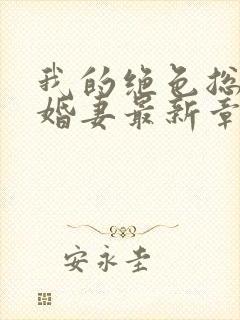 我的绝色总
婚妻最新章
安永圭